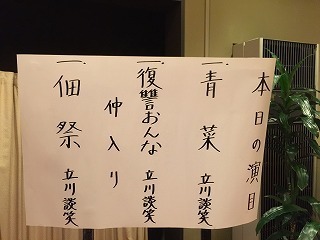 本日の演目
一.青菜 立川談笑
一.復讐おんな 立川談笑
仲入り
一.佃祭 立川談笑